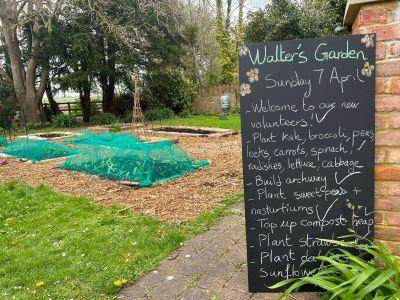 Walter's Garden
Sunday 7 April
- Welcome to our new
volunteers! ✓
- Plant kale, broccoli, peas,
leeks, carrots, spinach,
radishes, lettuce, cabbage
- Build archway ✓
- Plant sweet peas +
nasturtiums ✓
- Top up compost heap
- Plant
- Plant
Sunflow